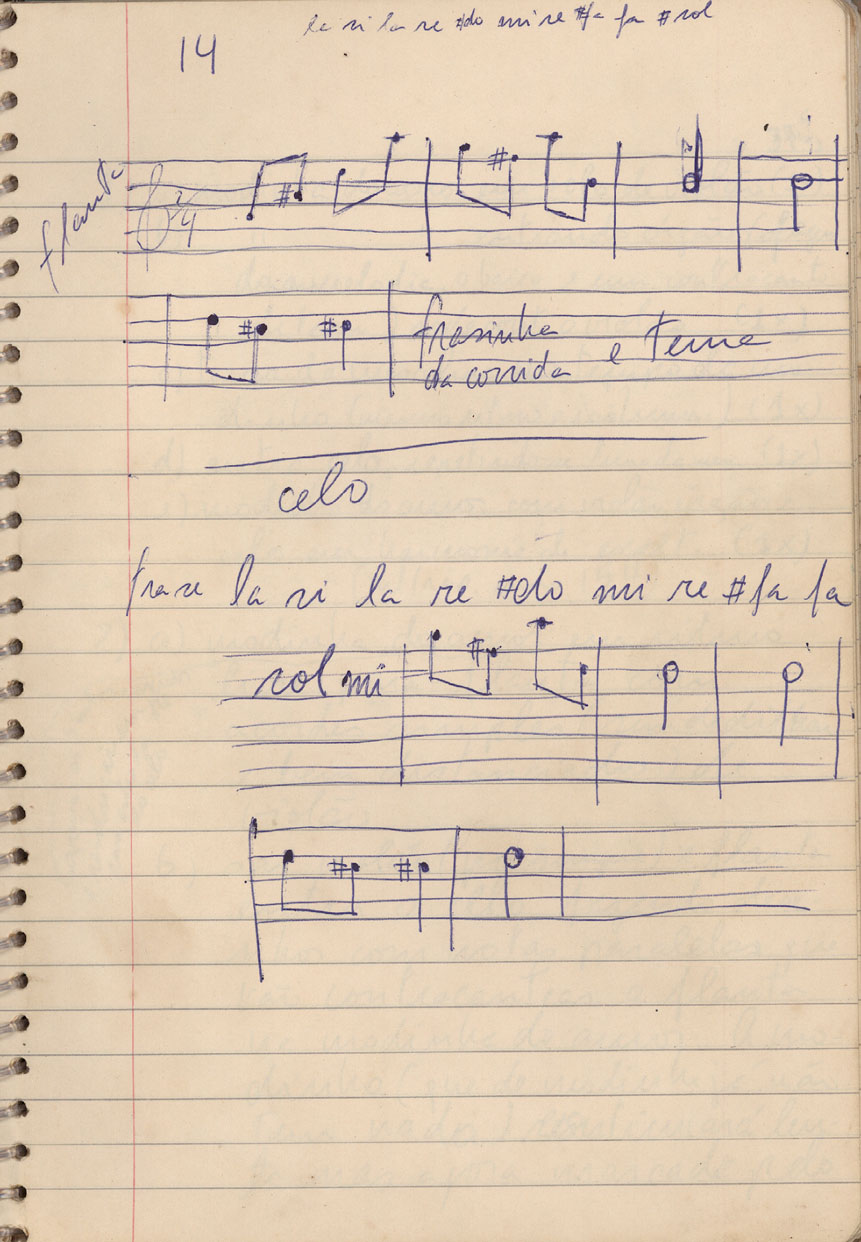 la si la re #do mi re #fa fa #sol
14
flauta
2/4
frasinha
da corrida e tema
celo
frase la si la re #do mi re #fa fa
sol mi